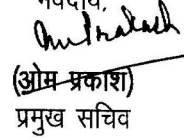 भवदीय,
(ओम प्रकाश)
प्रमुख सचिव